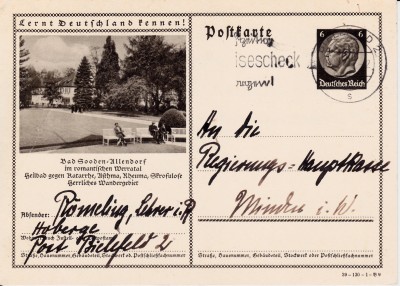 Lernt Deutschland kennen!
Postkarte
6 6
Deutsches Reich
isescheck
Bad Sooden-Allendorf
im romantischen Werratal
Heilbad gegen Katarrhe, Asthma, Rheuma, Skrofulose
Herrliches Wandergebiet
Absender: Römeling, Lehrer i. R.
Hoberge
Post Bielefeld 2
Straße, Hausnummer, Gebäudeteil, Stockwerk oder Postschließfachnummer
An die
Regierungs-Hauptkasse
Minden i. W.
Straße, Hausnummer, Gebäudeteil, Stockwerk oder Postschließfachnummer